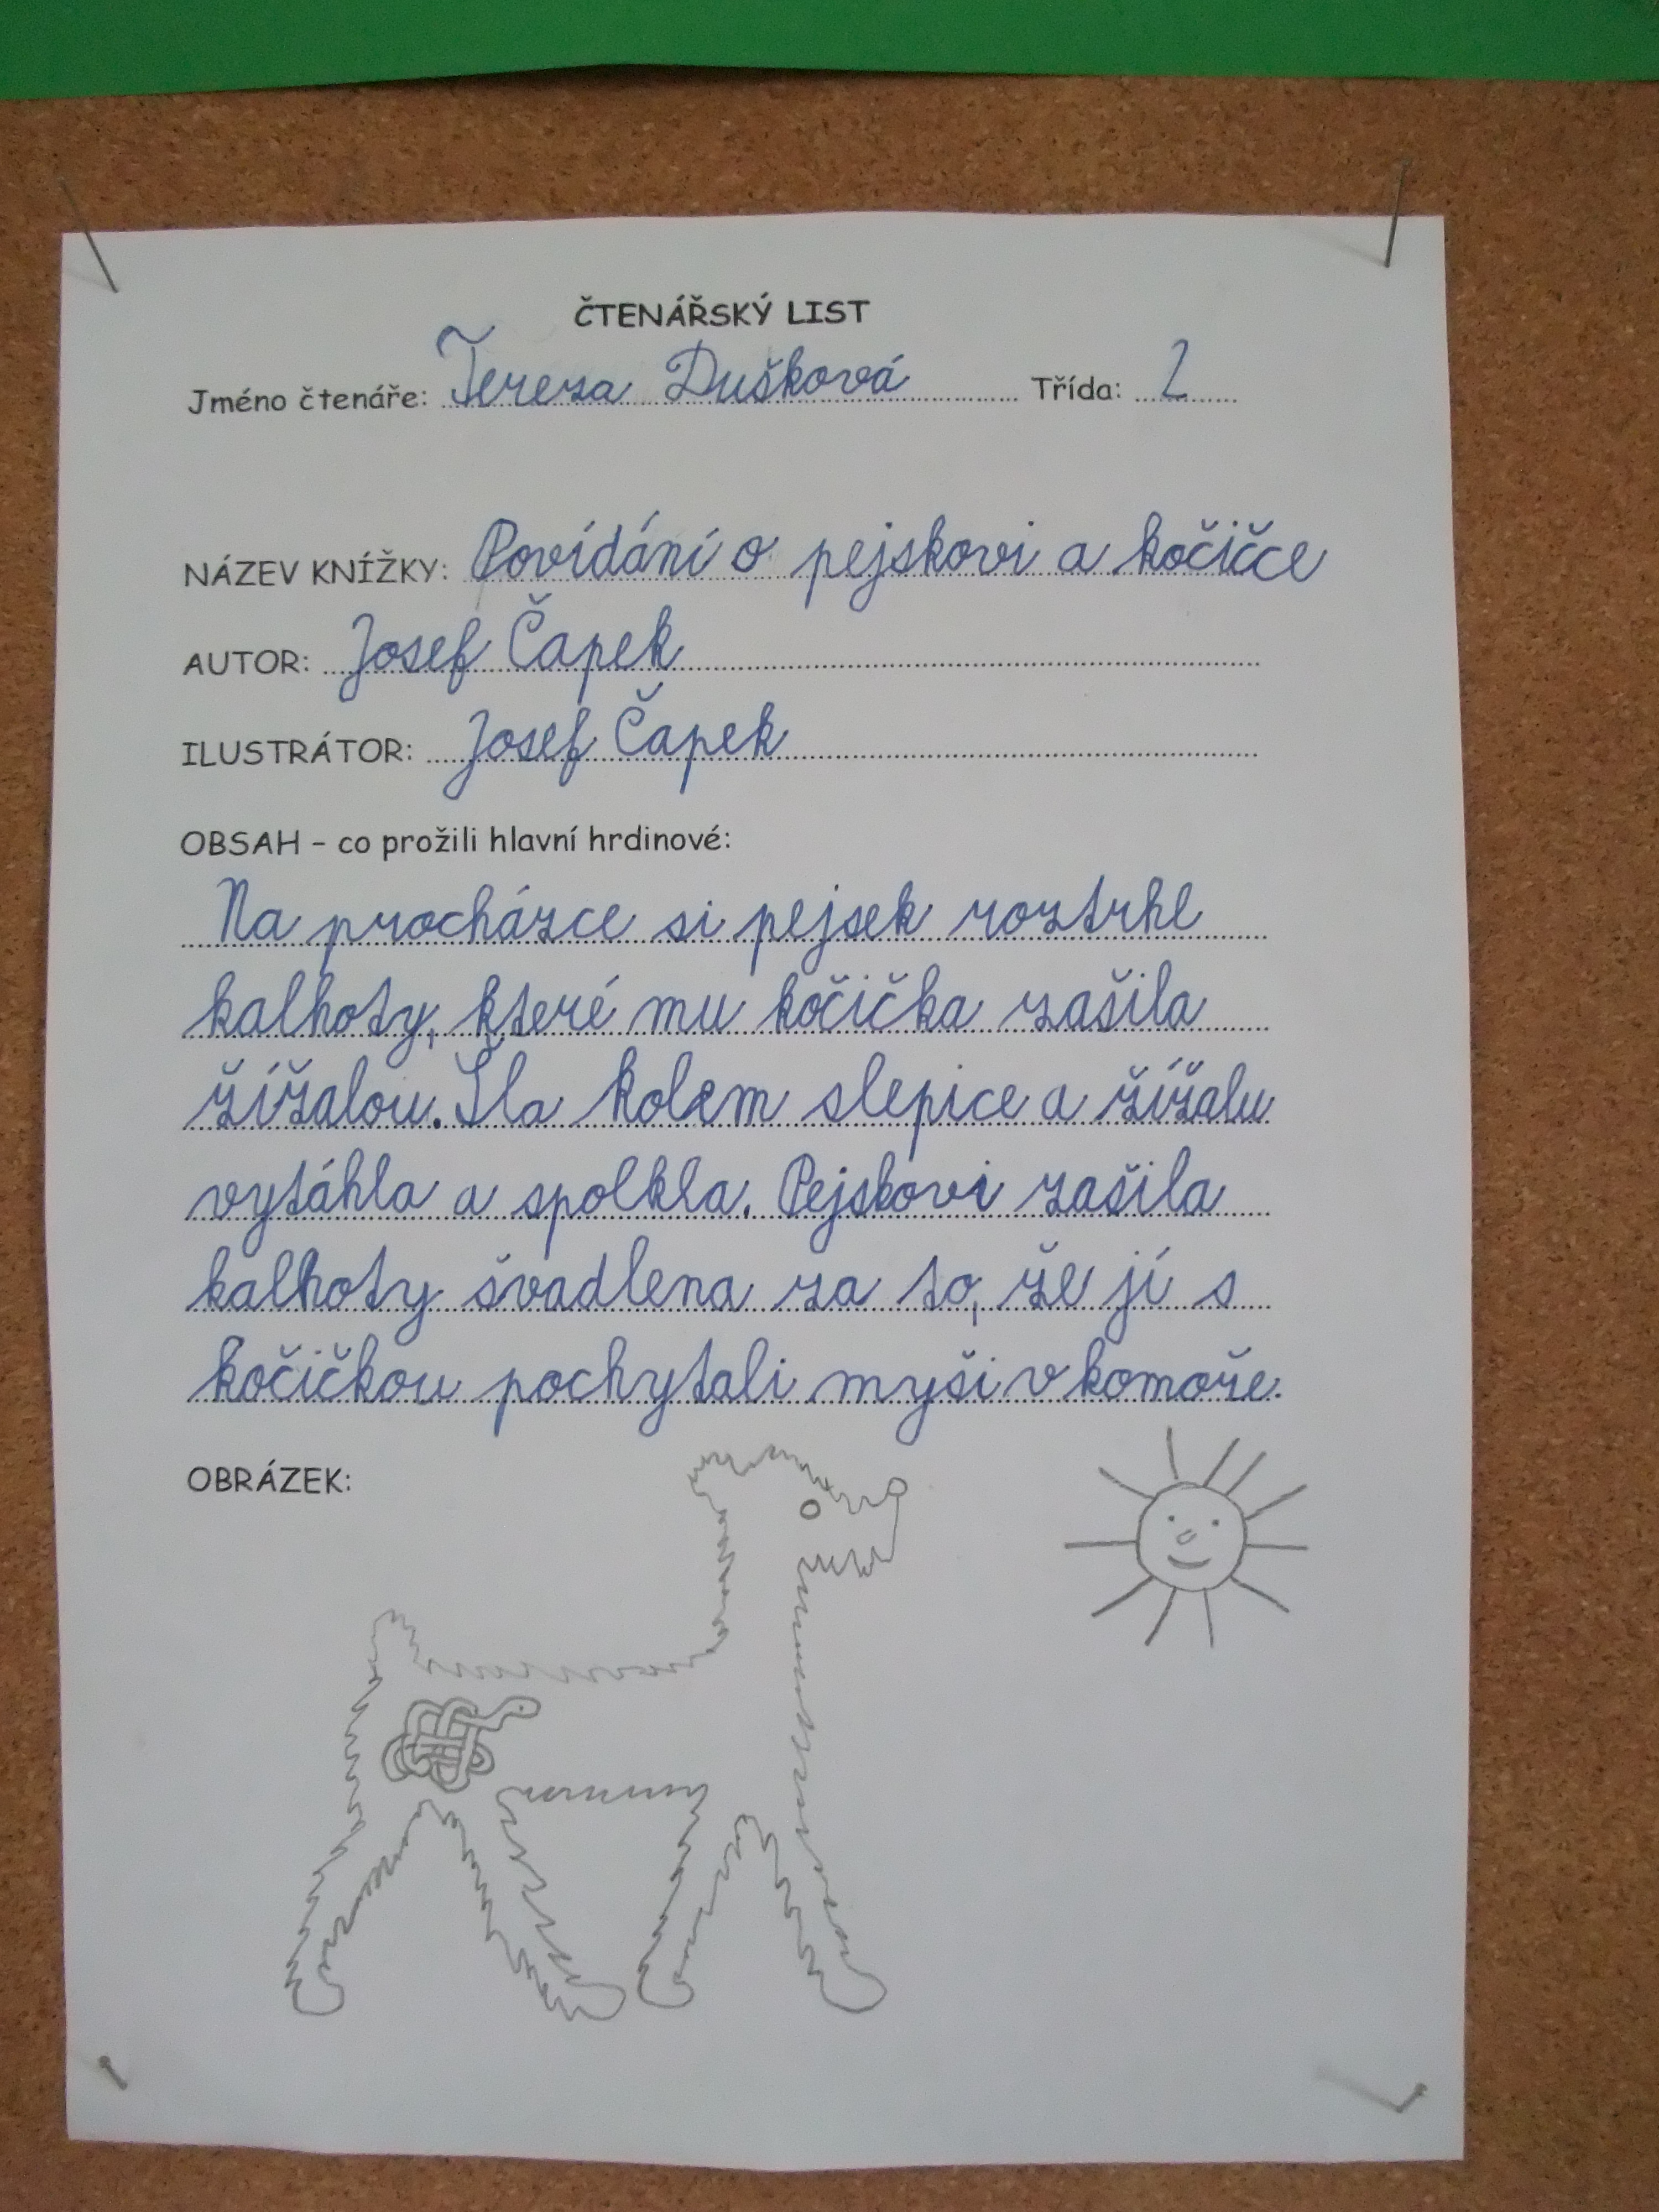 ČTENÁŘSKÝ LIST
Jméno čtenáře: Tereza Dušková Třída: 2
NÁZEV KNÍŽKY: Povídání o pejskovi a kočičce
AUTOR: Josef Čapek
ILUSTRÁTOR: Josef Čapek
OBSAH – co prožili hlavní hrdinové:
Na procházce si pejsek roztrhl
kalhoty, které mu kočička zašila
žížalou. Šla kolem slepice a žížalu
vytáhla a spolkla. Pejskovi zašila
kalhoty švadlena za to, že jí s
kočičkou pochytali myši v komoře.
OBRÁZEK: